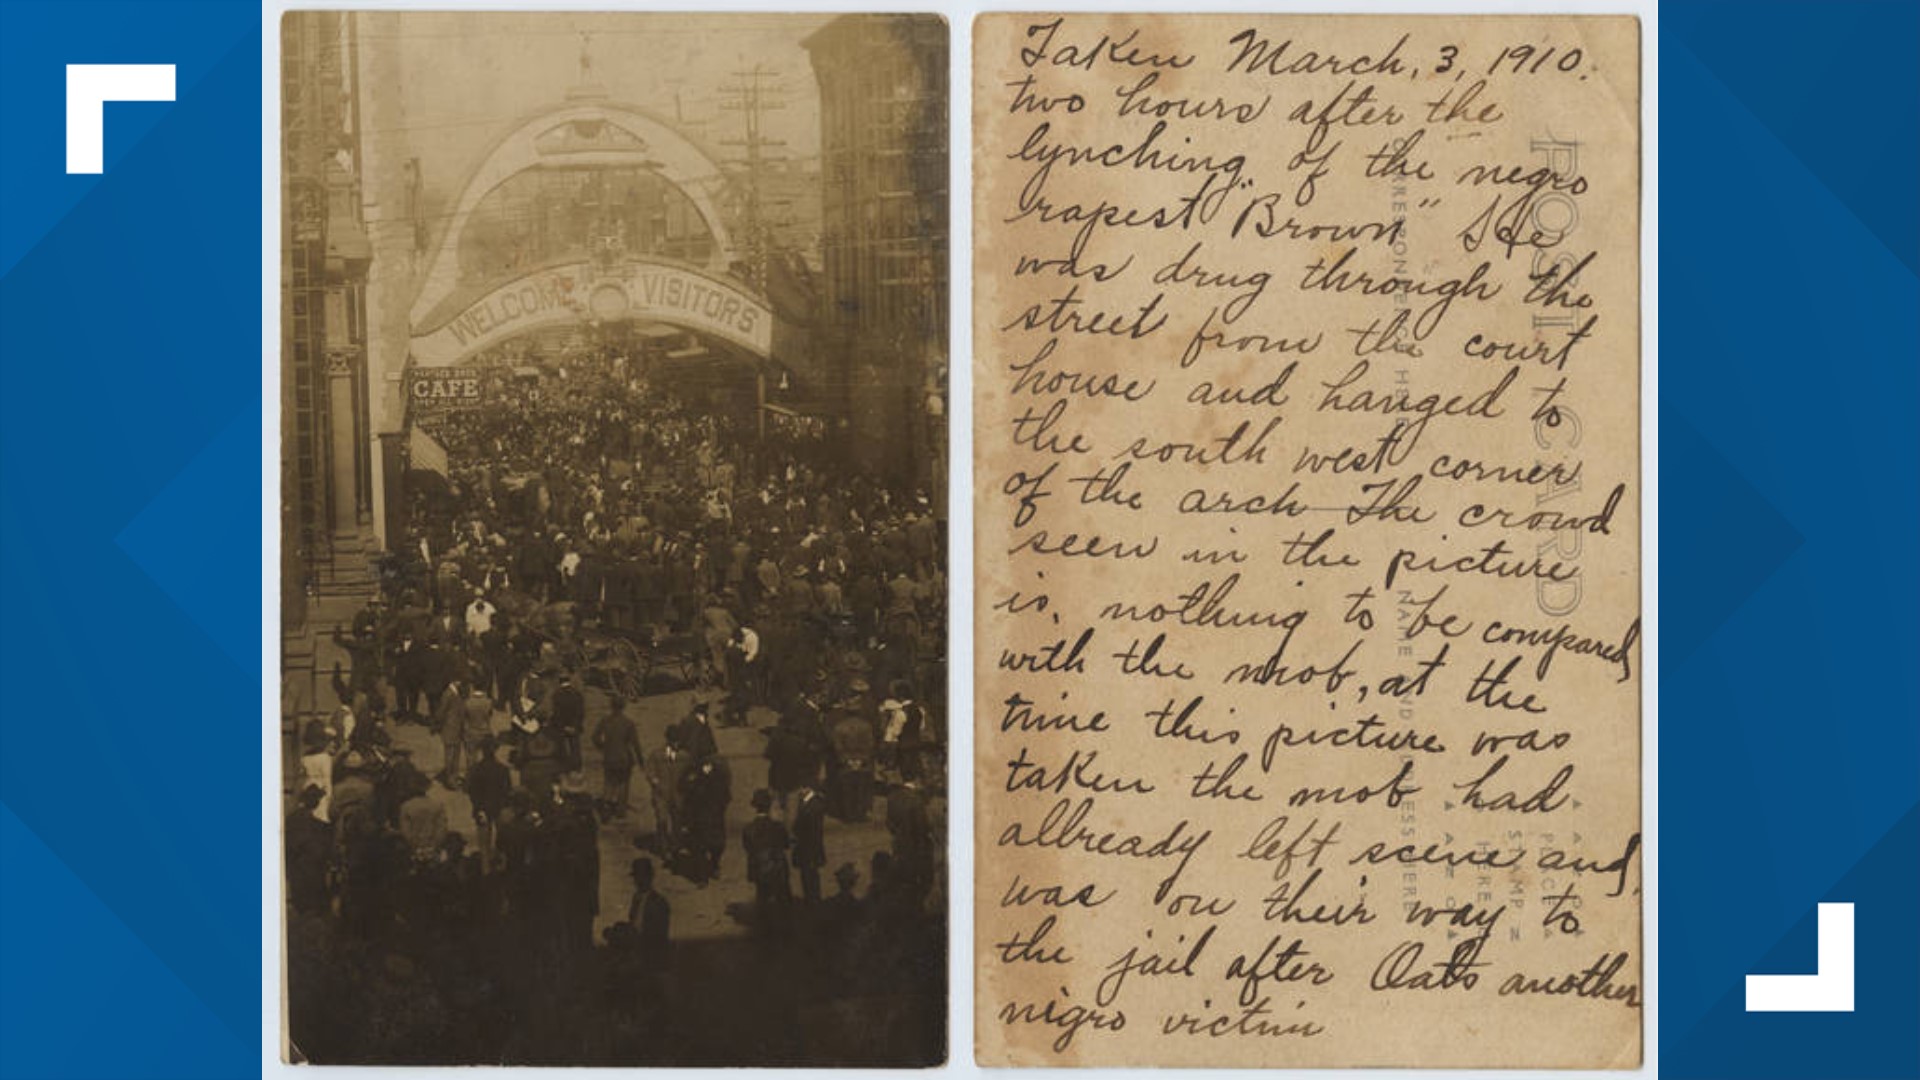 WELCOME VISITORS
CAFE
Taken March, 3, 1910.
two hours after the
lynching of the negro
rapest "Brown" He
was drug through the
street from the court
house and hanged to
the south west corner
of the arch The crowd
seen in the picture
is, nothing to be compared
with the mob, at the
time this picture was
taken the mob had
allready left scene and
was on their way to
the jail after Oats another
nigro victim
POST CARD
CORRESPONDENCE HERE
NAME AND ADDRESS HERE
PLACE
STAMP
HERE